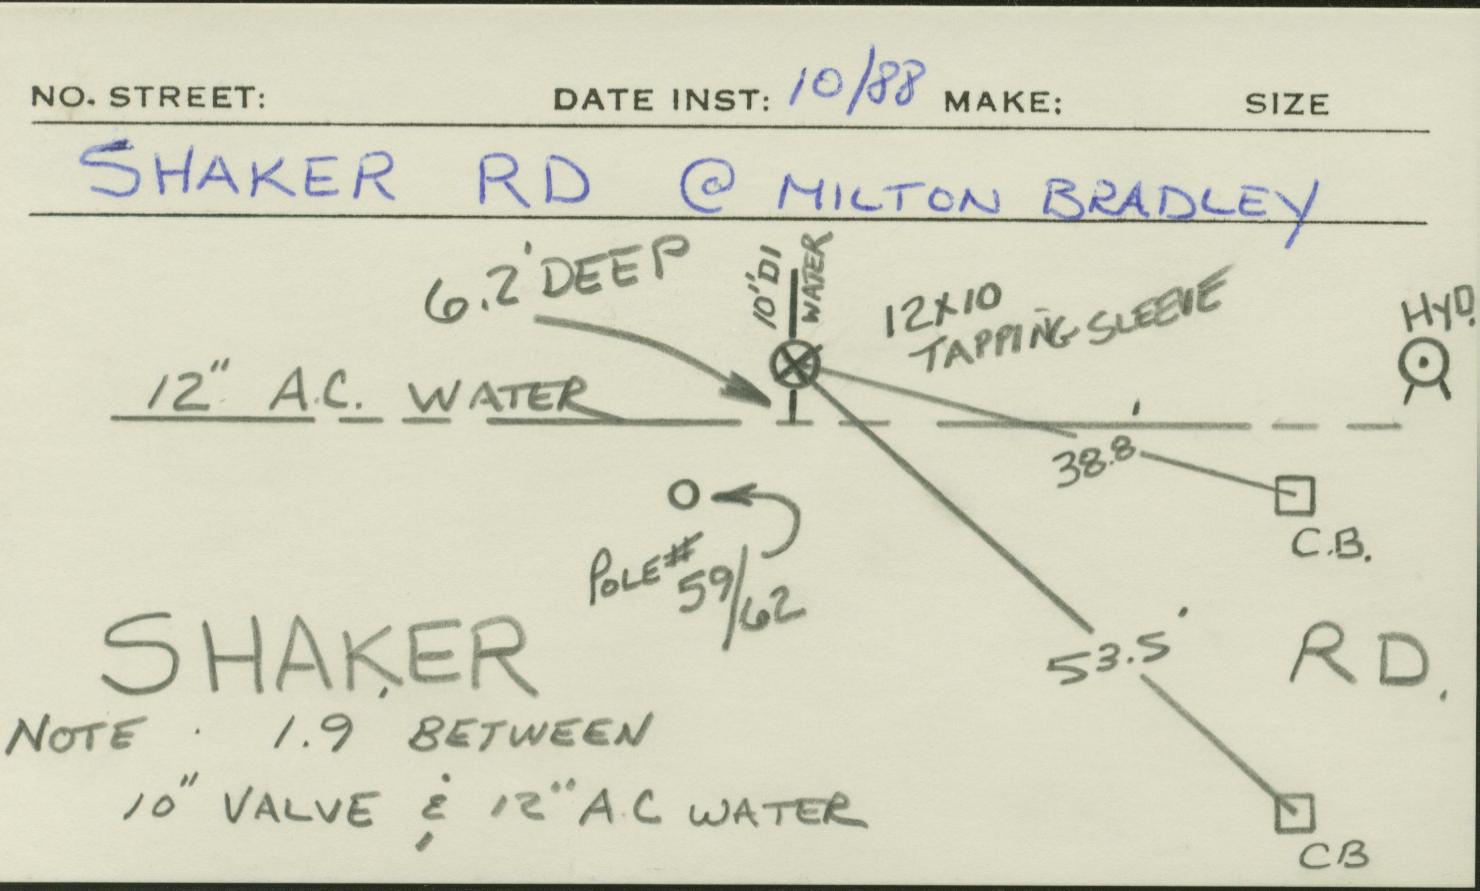 NO. STREET: DATE INST: 10/88 MAKE: SIZE
SHAKER RD @ MILTON BRADLEY
6.2' DEEP
10" DI
WATER
12X10
TAPPING SLEEVE
HYD.
12" A.C. WATER
38.8'
C.B.
POLE #
59/62
SHAKER RD.
53.5'
NOTE . 1.9 BETWEEN
10" VALVE & 12" A.C WATER
CB